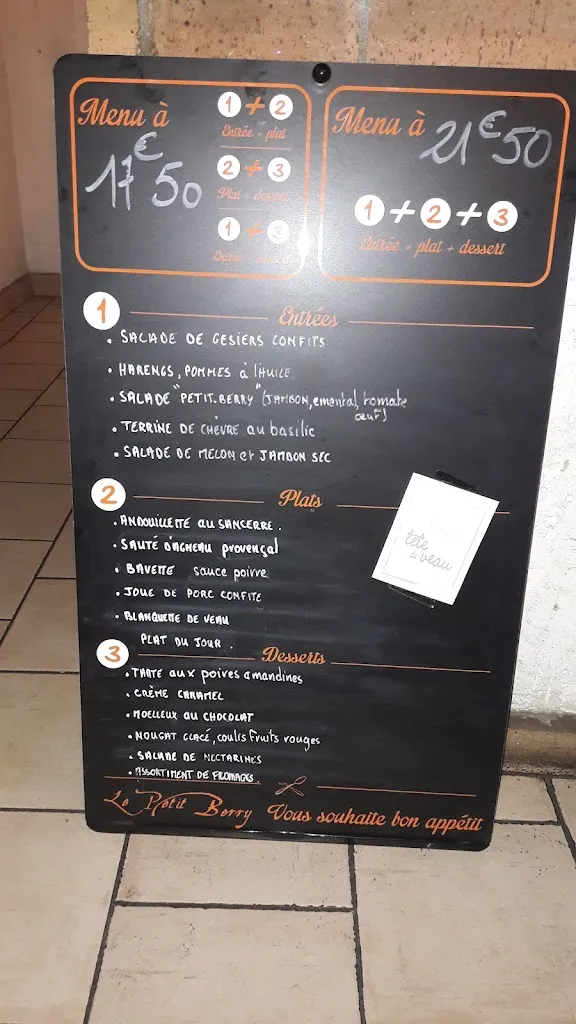 Menu à
17€50
1 + 2
Entrée + plat
2 + 3
Plat + dessert
1 + 3
Entrée + dessert
Menu à
21€50
1 + 2 + 3
Entrée + plat + dessert
1 Entrées
• SALADE DE GESIERS CONFITS
• HARENGS, POMMES à l'HUILE
• SALADE "PETIT-BERRY" (JAMBON, emental, tomate
œuf)
• TERRINE DE CHÈVRE au basilic
• SALADE DE MELON et JAMBON SEC
2 Plats
• ANDOUILLETTE AU SANCERRE.
• SAUTÉ D'AGNEAU provençal
• BAVETTE sauce poivre
• JOUE DE PORC CONFITE
• BLANQUETTE DE VEAU
PLAT DU JOUR.
tête
de veau
3 Desserts
• TARTE aux poires amandines
• CRÈME CARAMEL
• MOELLEUX AU CHOCOLAT
• NOUGAT GLACÉ, coulis fruits rouges
• SALADE DE NECTARINES
• ASSORTIMENT DE FROMAGES
Le Petit Berry Vous souhaite bon appétit